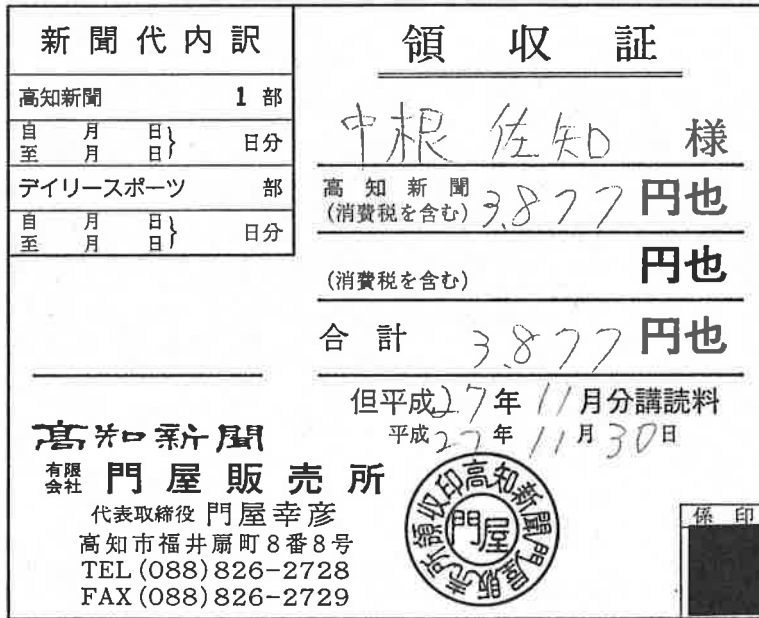 新聞代内訳
高知新聞 1 部
自 月 日
至 月 日} 日分
デイリースポーツ 部
自 月 日
至 月 日} 日分
領収証
中根 佐知 様
高知新聞
(消費税を含む) 3,877 円也
(消費税を含む) 円也
合計 3,877 円也
但平成27年11月分講読料
平成27年11月30日
高知新聞
有限会社 門屋販売所
代表取締役 門屋幸彦
高知市福井扇町8番8号
TEL(088)826-2728
FAX(088)826-2729
高知新聞門屋販売所領収印
門屋
係印